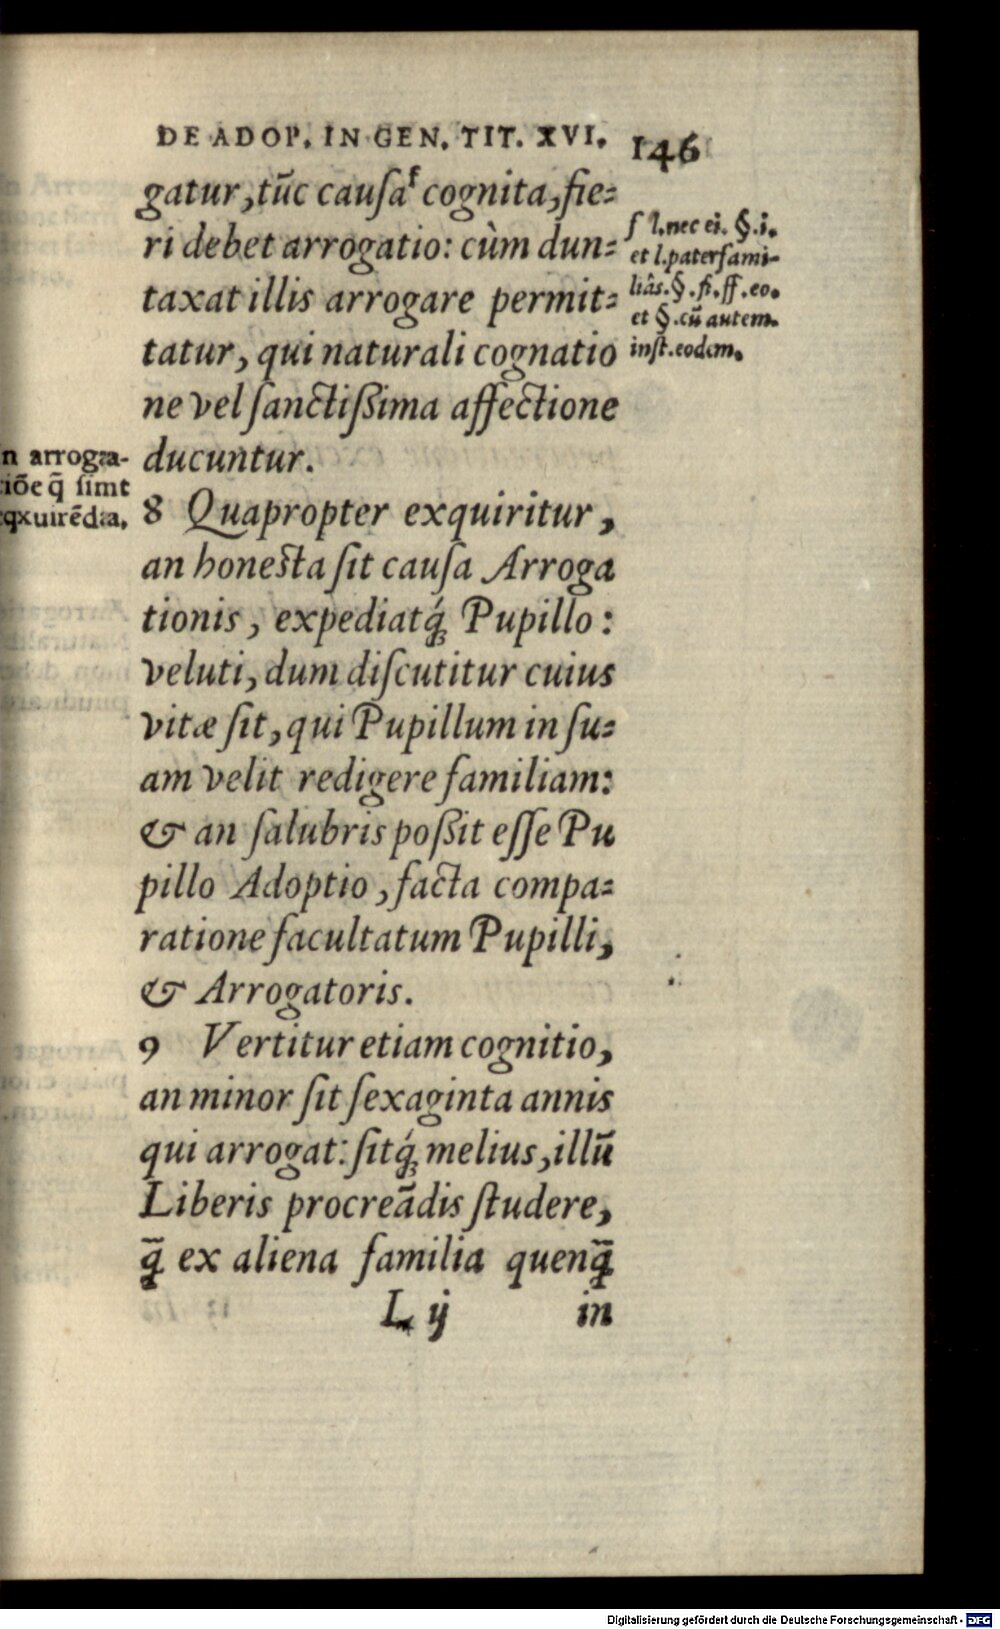 DE ADOP. IN GEN. TIT. XVI. 146
gatur, tũc cauſaᶠ cognita, fie⸗
ri debet arrogatio: cùm dun⸗
taxat illis arrogare permit⸗
tatur, qui naturali cognatio
ne vel ſanctiſsima affectione
ducuntur.
ſ l. nec ei. §. i.
et l. paterfami-
liâs. §. fi. ff. eo.
et §. cũ autem.
inſt. eodem.
n arroga-
iõe q̃ ſint
qxuirẽda.
8 Quapropter exquiritur,
an honeſta ſit cauſa Arroga
tionis, expediatq́; Pupillo:
veluti, dum diſcutitur cuius
vitæ ſit, qui Pupillum in ſu⸗
am velit redigere familiam:
& an ſalubris poſsit eſſe Pu
pillo Adoptio, facta compa⸗
ratione facultatum Pupilli,
& Arrogatoris.
9 Vertitur etiam cognitio,
an minor ſit ſexaginta annis
qui arrogat: ſitq́; melius, illũ
Liberis procreãdis ſtudere,
q̃ ex aliena familia quenq̃
L ij in
Digitalisierung gefördert durch die Deutsche Forschungsgemeinschaft - DFG